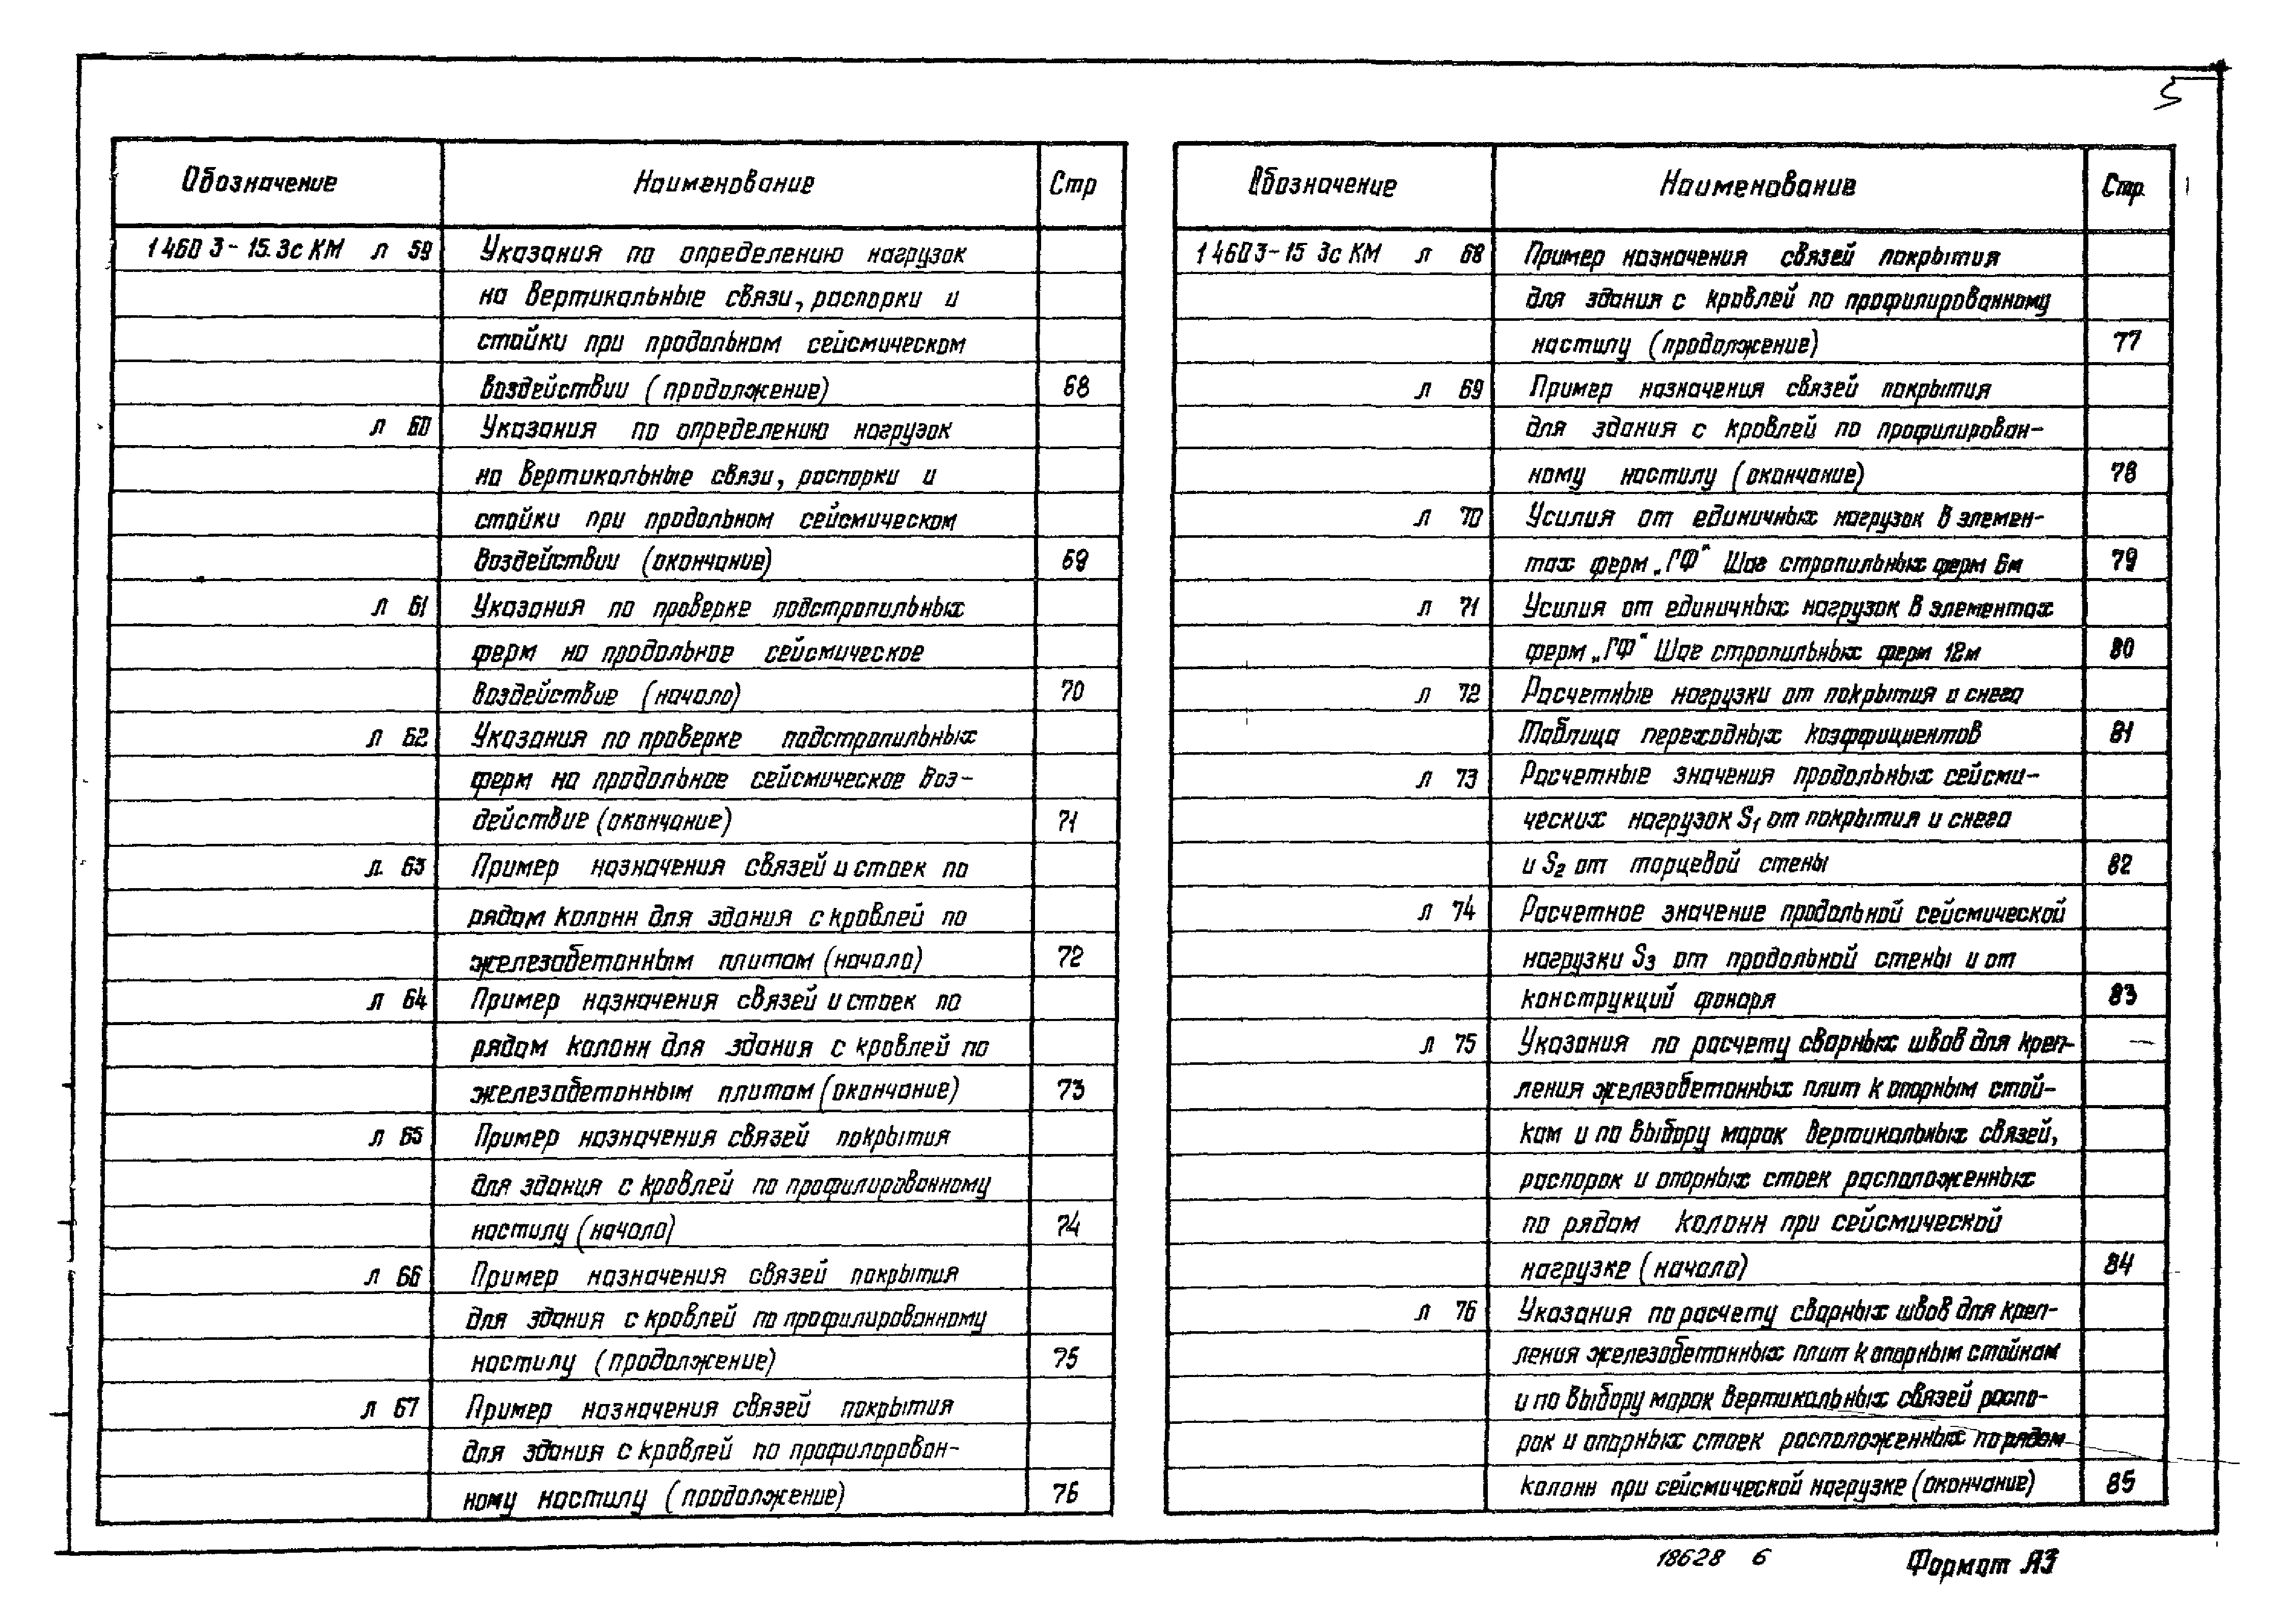 5
Обозначение Наименование Стр
1 460 3-15.3с КМ л 59 Указания по определению нагрузок
на вертикальные связи, распорки и
стойки при продольном сейсмическом
воздействии (продолжение) 68
л 60 Указания по определению нагрузок
на вертикальные связи, распорки и
стойки при продольном сейсмическом
воздействии (окончание) 69
л 61 Указания по проверке подстропильных
ферм на продольное сейсмическое
воздействие (начало) 70
л 62 Указания по проверке подстропильных
ферм на продольное сейсмическое воз-
действие (окончание) 71
л. 63 Пример назначения связей и стоек по
рядам колонн для здания с кровлей по
железобетонным плитам (начало) 72
л 64 Пример назначения связей и стоек по
рядам колонн для здания с кровлей по
железобетонным плитам (окончание) 73
л 65 Пример назначения связей покрытия
для здания с кровлей по профилированному
настилу (начало) 74
л 66 Пример назначения связей покрытия
для здания с кровлей по профилированному
настилу (продолжение) 75
л 67 Пример назначения связей покрытия
для здания с кровлей по профилирован-
ному настилу (продолжение) 76
Обозначение Наименование Стр.
1 460 3-15 3с КМ л 68 Пример назначения связей покрытия
для здания с кровлей по профилированному
настилу (продолжение) 77
л 69 Пример назначения связей покрытия
для здания с кровлей по профилирован-
ному настилу (окончание) 78
л 70 Усилия от единичных нагрузок в элемен-
тах ферм „ГФ" Шаг стропильных ферм 6м 79
л 71 Усилия от единичных нагрузок в элементах
ферм „ГФ" Шаг стропильных ферм 12м 80
л 72 Расчетные нагрузки от покрытия и снега
Таблица переходных коэффициентов 81
л 73 Расчетные значения продольных сейсми-
ческих нагрузок S₁ от покрытия и снега
и S₂ от торцевой стены 82
л 74 Расчетное значение продольной сейсмической
нагрузки S₃ от продольной стены и от
конструкций фонаря 83
л 75 Указания по расчету сварных швов для креп-
ления железобетонных плит к опорным стой-
кам и по выбору марок вертикальных связей,
распорок и опорных стоек расположенных
по рядам колонн при сейсмической
нагрузке (начало) 84
л 76 Указания по расчету сварных швов для креп-
ления железобетонных плит к опорным стойкам
и по выбору марок вертикальных связей распо-
рок и опорных стоек расположенных по рядам
колонн при сейсмической нагрузке (окончание) 85
18628 6 Формат А3